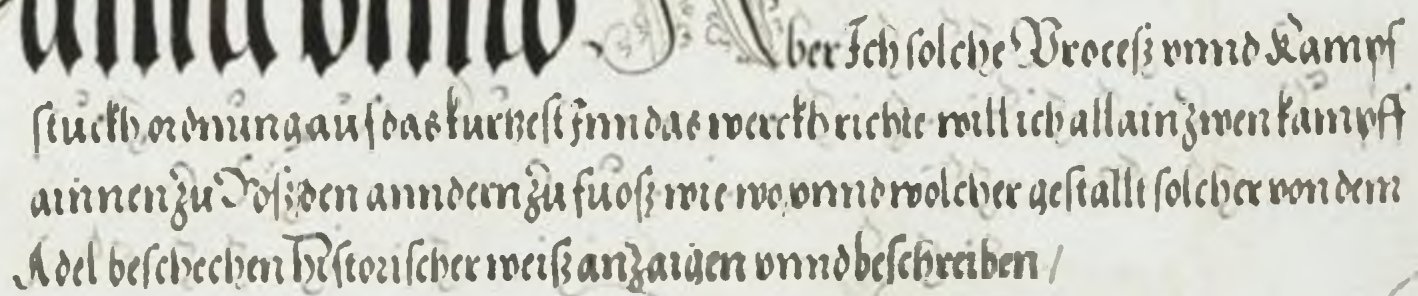 Aber Ich solche Proceß vnnd Kampf
stuckh ordnung auf das kurtzest jnn das werckh richte will ich allain zwen kämpff
ainnen zu Roß, den anndern zu fuoß wie wo, vnnd wölcher gestallt solcher von dem
Adel beschechen Historischer weiß anzaigen vnnd beschreiben /